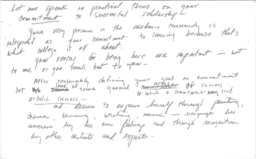 Let me speak in practical terms on your
commitment to successful scholarship.
Your very presence in the academic community is
interpreted as your commitment to learning because that's
what college is all about.
Your reasons for being here are important — not
to me or your family but to you.
After presumably defining your goal or commitment
look at some general of success
artistic success —
to express herself through painting,
drama, dancing, writing, music — recognizes her
success by her own feelings and through recognition
by other artists and experts.